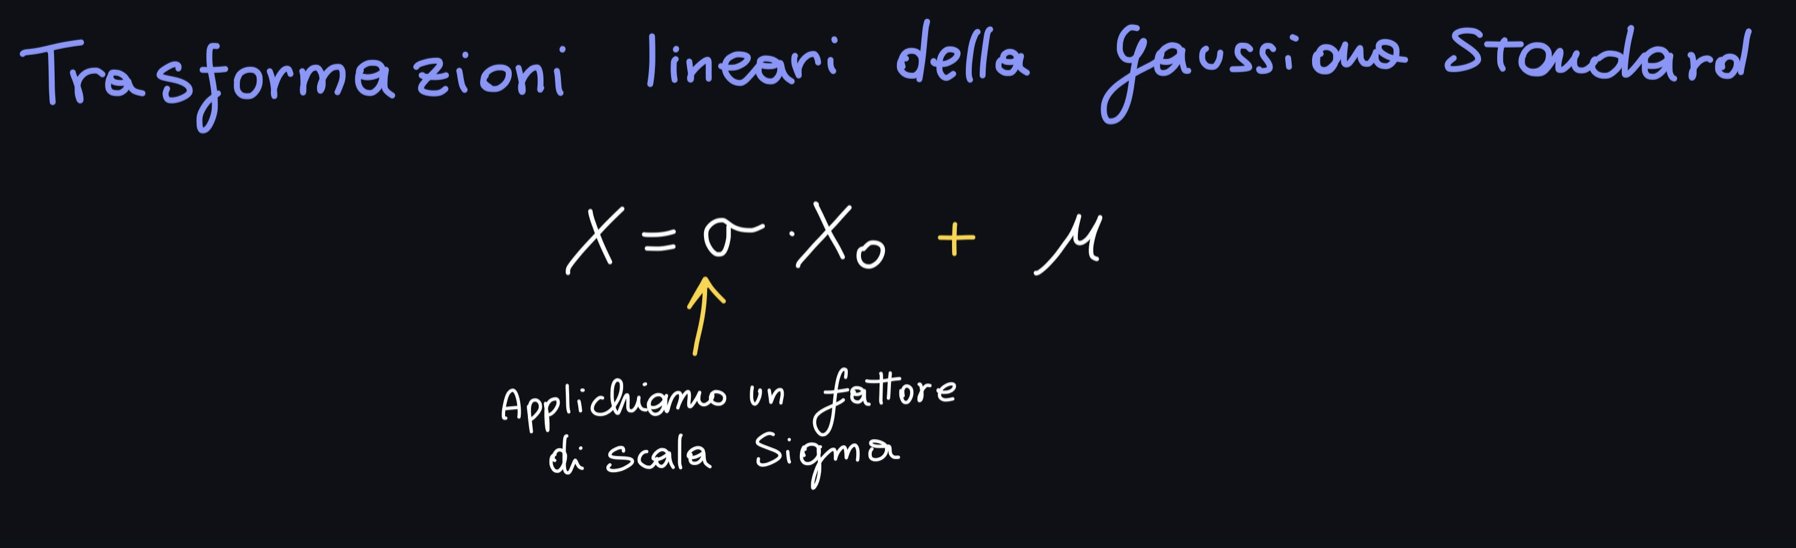 Trasformazioni lineari della gaussiana standard
X = σ · X₀ + μ
Applichiamo un fattore
di scala Sigma